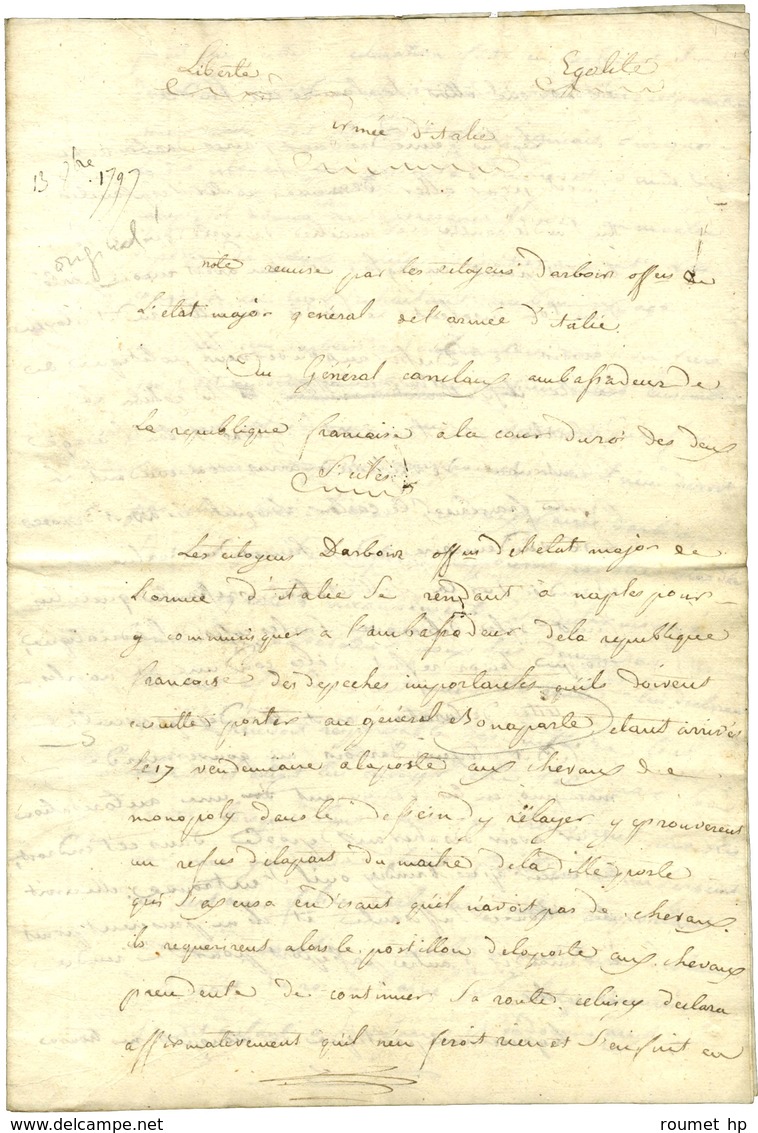 Liberté Egalité
armée d'italie
13 7bre 1797
original
note remise par les citoyens Darboin offers de
L'etat major général de l'armée d'italie.
au Général canclaux ambassadeur de
La republique francaise a la cour du roi des deux
Siciles
Les citoyens Darboin offers de l'etat major de
L'armée d'italie Se rendant à naples pour
y communiquer à l'ambassadeur de la republique
francoise des depeches importantes qu'ils doivent
ensuitte porter au général Bonaparte etant arrivés
le 17 vendemiaire a la poste aux chevaux de
monopoly dans le dessein d'y rélayer y eprouverent
un refus de la part du maitre de la ditte poste
qui S'axcusa en disant qu'il n'avoit pas de chevaux
ils requerirent alors le postillon de la poste aux chevaux
precedente de continuer Sa route. celuicy declara
affirmativement qu'il n'en feroit rien et S'enfuit en
roumet hp